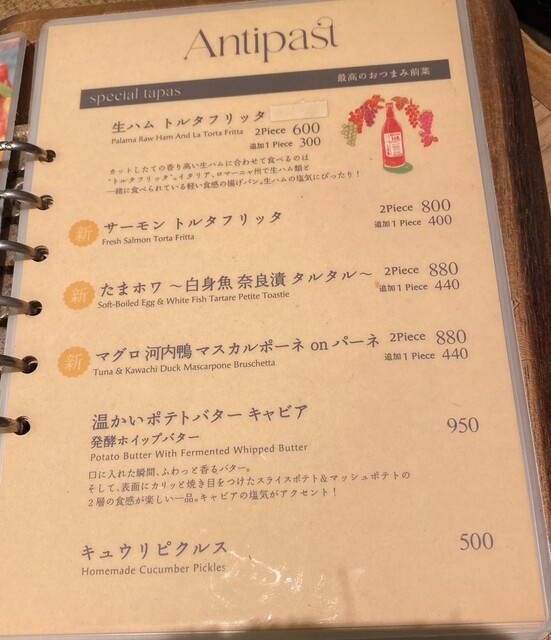 Antipast
special tapas 最高のおつまみ前菜
生ハム トルタフリッタ
Palama Raw Ham And La Torta Fritta 2Piece 600
追加1 Piece 300
カットしたての香り高い生ハムに合わせて食べるのは
"トルタフリッタ"。イタリア、ロマーニャ州で生ハム類と
一緒に食べられている軽い食感の揚げパン。生ハムの塩気にぴったり!
新 サーモン トルタフリッタ 2Piece 800
Fresh Salmon Torta Fritta 追加1 Piece 400
新 たまホワ ～白身魚 奈良漬 タルタル～ 2Piece 880
Soft-Boiled Egg & White Fish Tartare Petite Toastie 追加1 Piece 440
新 マグロ 河内鴨 マスカルポーネ on パーネ 2Piece 880
Tuna & Kawachi Duck Mascarpone Bruschetta 追加1 Piece 440
温かいポテトバター キャビア 950
発酵ホイップバター
Potato Butter With Fermented Whipped Butter
口に入れた瞬間、ふわっと香るバター。
そして、表面にカリッと焼き目をつけたスライスポテト&マッシュポテトの
2層の食感が楽しい一品。キャビアの塩気がアクセント!
キュウリピクルス 500
Homemade Cucumber Pickles